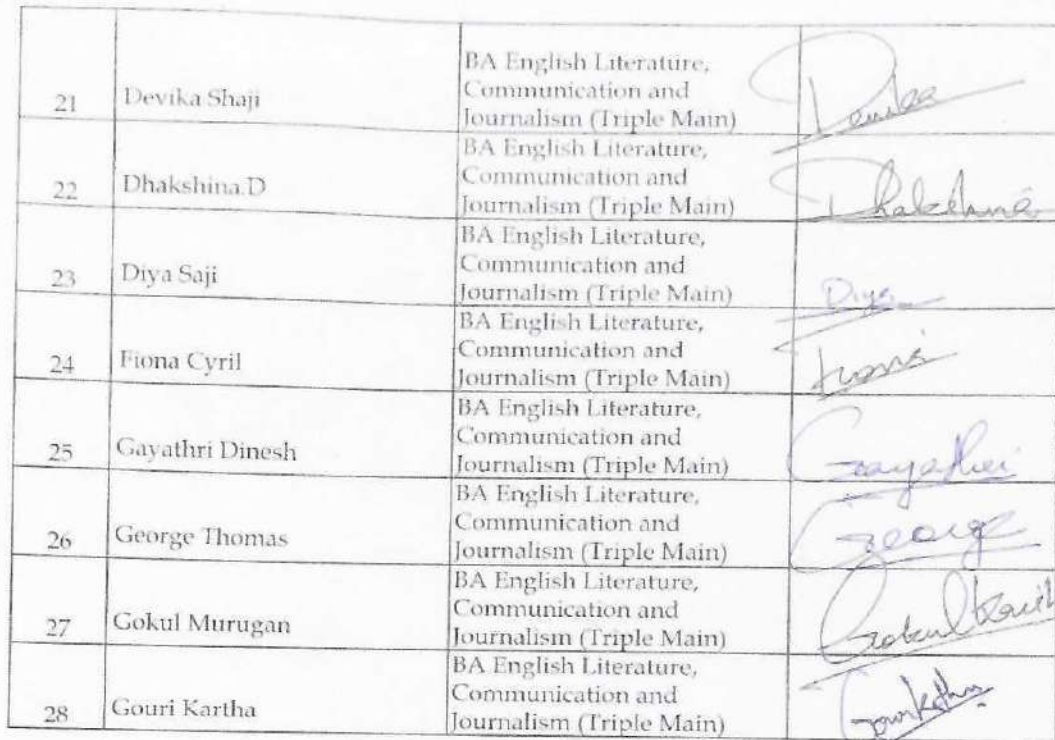 21 Devika Shaji BA English Literature,
Communication and
Journalism (Triple Main) Devika
22 Dhakshina.D BA English Literature,
Communication and
Journalism (Triple Main) Dhakshina
23 Diya Saji BA English Literature,
Communication and
Journalism (Triple Main) Diya
24 Fiona Cyril BA English Literature,
Communication and
Journalism (Triple Main) Fiona
25 Gayathri Dinesh BA English Literature,
Communication and
Journalism (Triple Main) Gayathri
26 George Thomas BA English Literature,
Communication and
Journalism (Triple Main) George
27 Gokul Murugan BA English Literature,
Communication and
Journalism (Triple Main) Gokul
28 Gouri Kartha BA English Literature,
Communication and
Journalism (Triple Main)